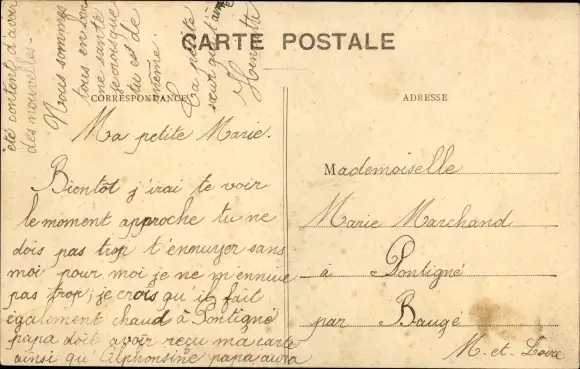 CARTE POSTALE
CORRESPONDANCE
Ma petite Marie.
Bientot j'irai te voir
le moment approche tu ne
dois pas trop t'ennuyer sans
moi pour moi je ne m'ennuie
pas trop; je crois qu'il fait
également chaud à Pontigné
papa doit avoir reçu ma carte
ainsi qu'Alphonsine papa aura
été content d'avoir
des nouvelles.
Nous sommes
tous en bon
ne santé
je crois que
tu est de
même.
Ta petite
sœur qui t'aime
Henriette
ADRESSE
Mademoiselle
Marie Marchand
à Pontigné
par Baugé
M.-et-Loire